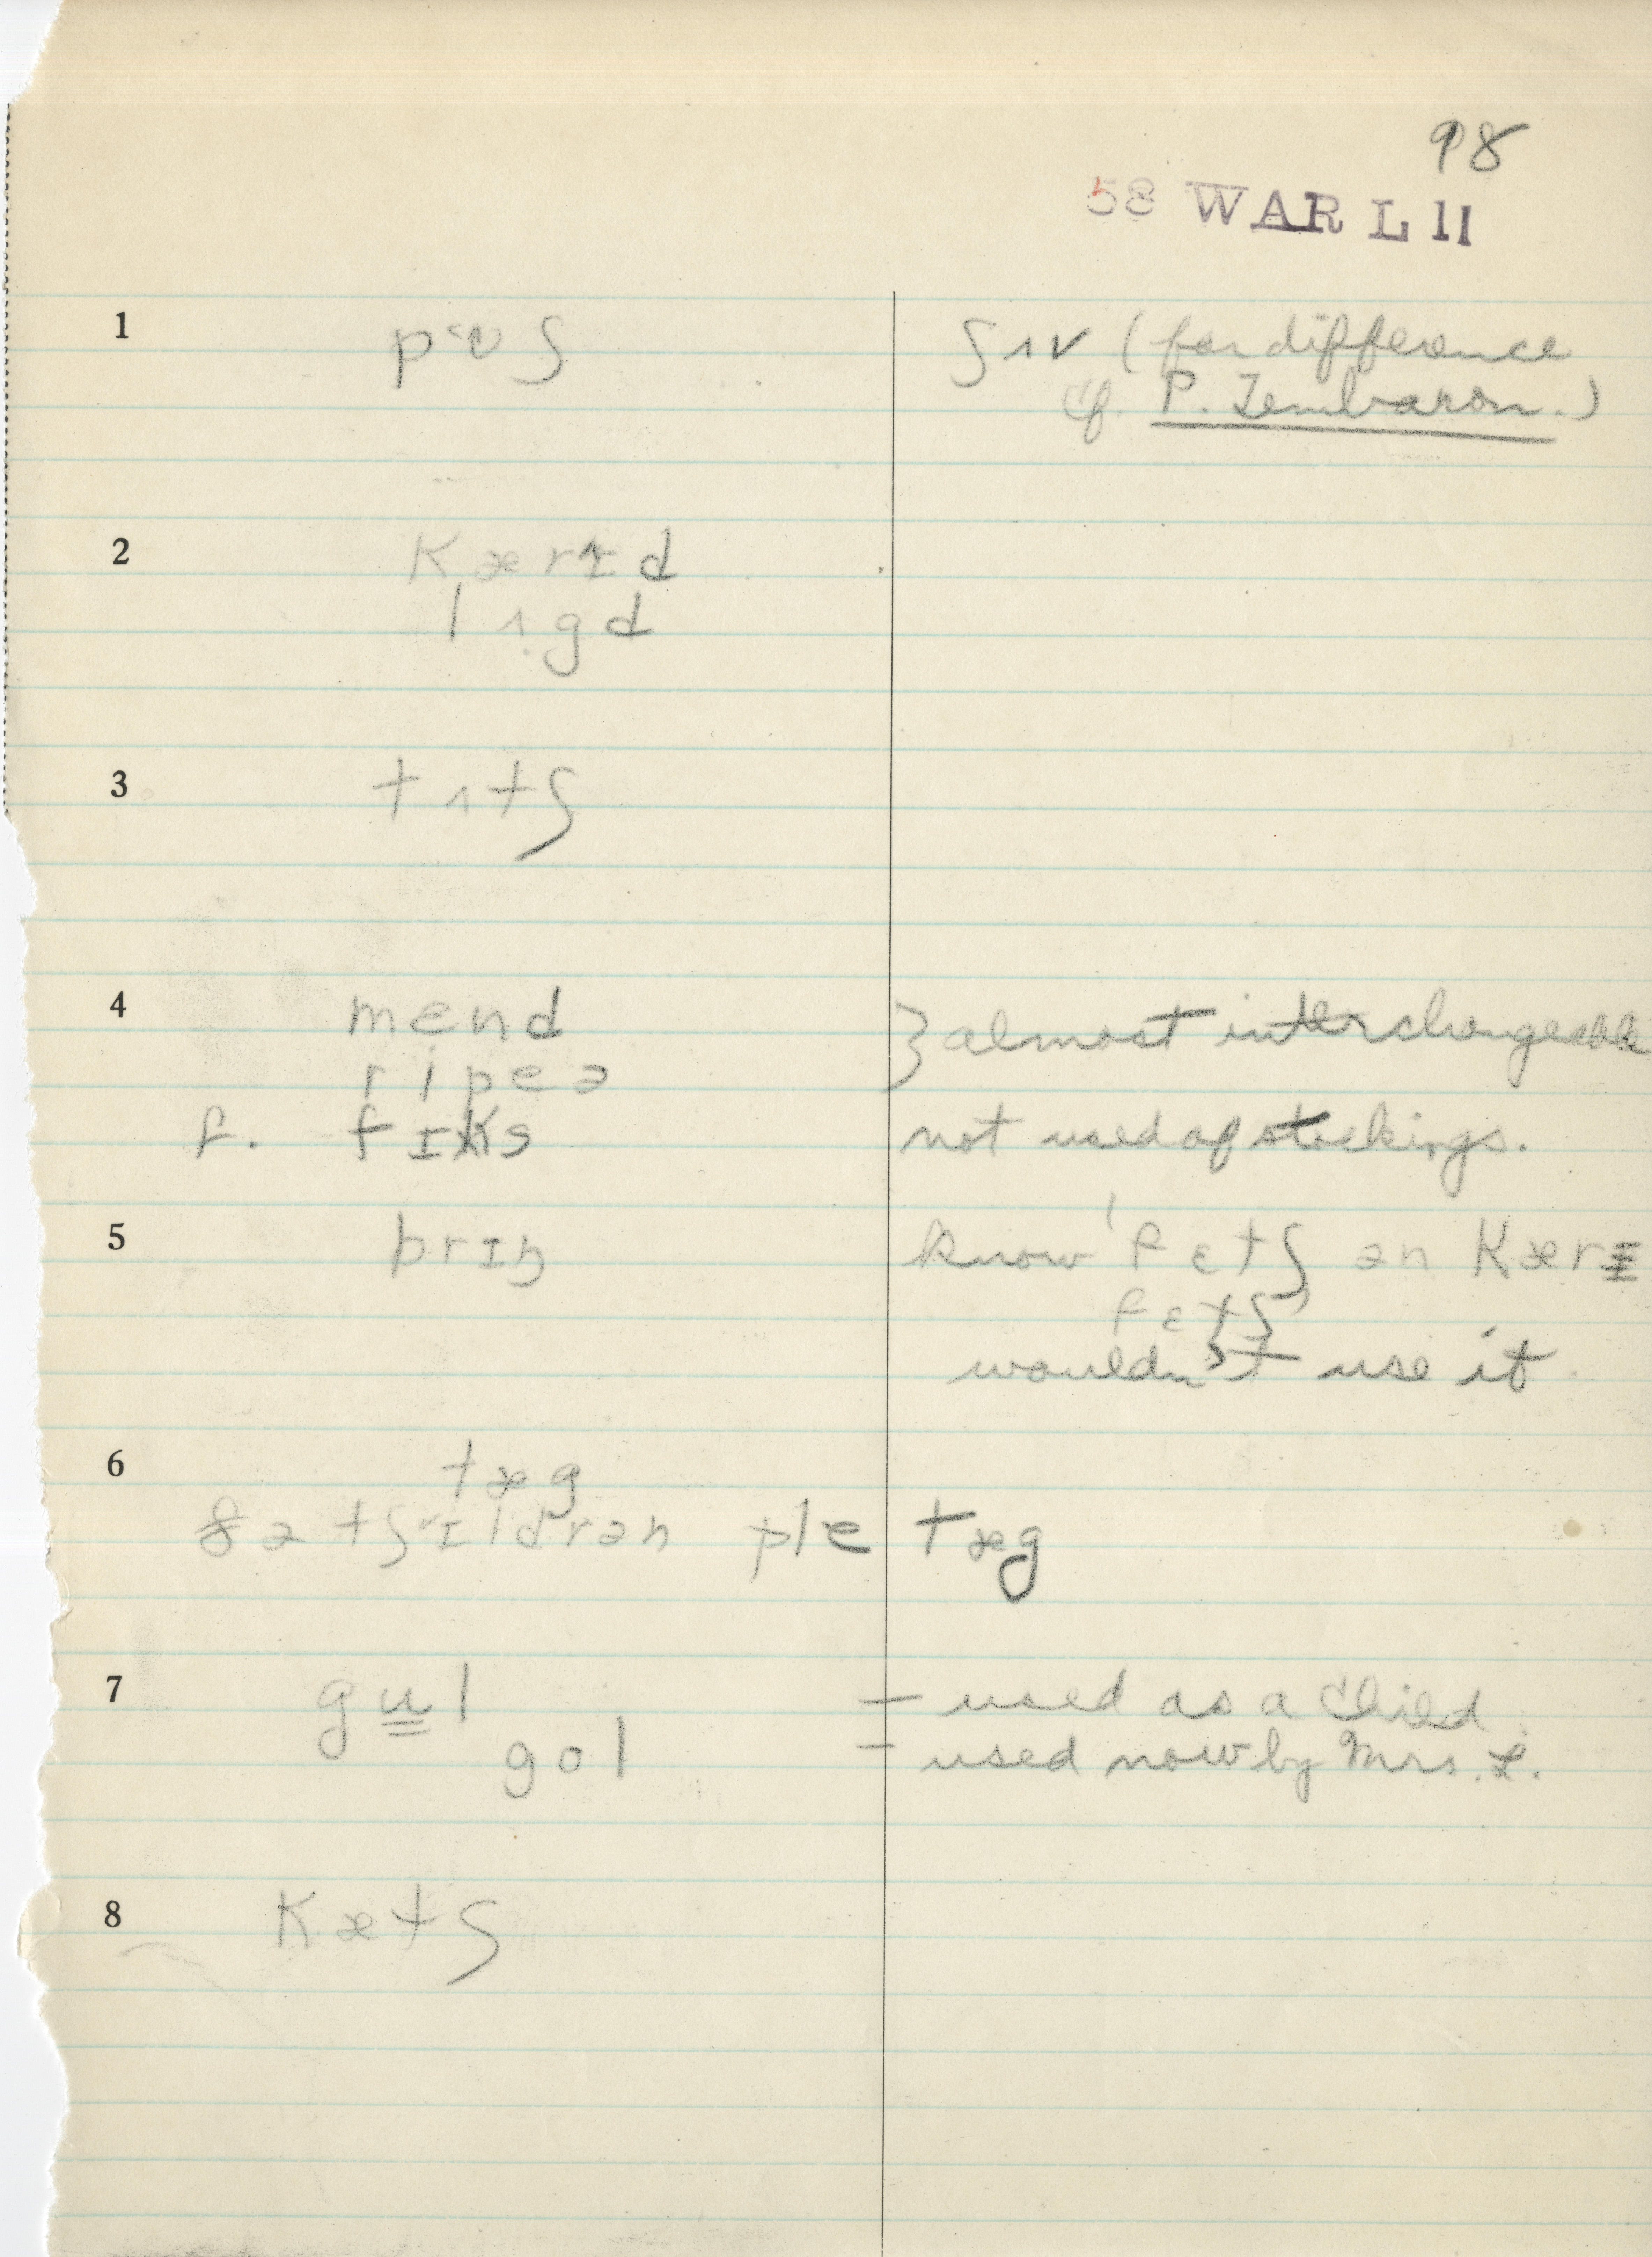 98
58 WAR L 11
1 pʊʃ ʃʌv (for difference
cf. P. Tembarom.)
2 kærɪd
lʌgd
3 tʌtʃ
4 mɛnd } almost interchangeable
ripeə
f. fɪks not used of stockings.
5 brɪŋ know 'fɛtʃ ən kærɪ
fɛtʃ
wouldn't use it
6 tæg
ðə tʃɪldrən ple tæg
7 gul – used as a child
gol – used now by Mrs. L.
8 kætʃ